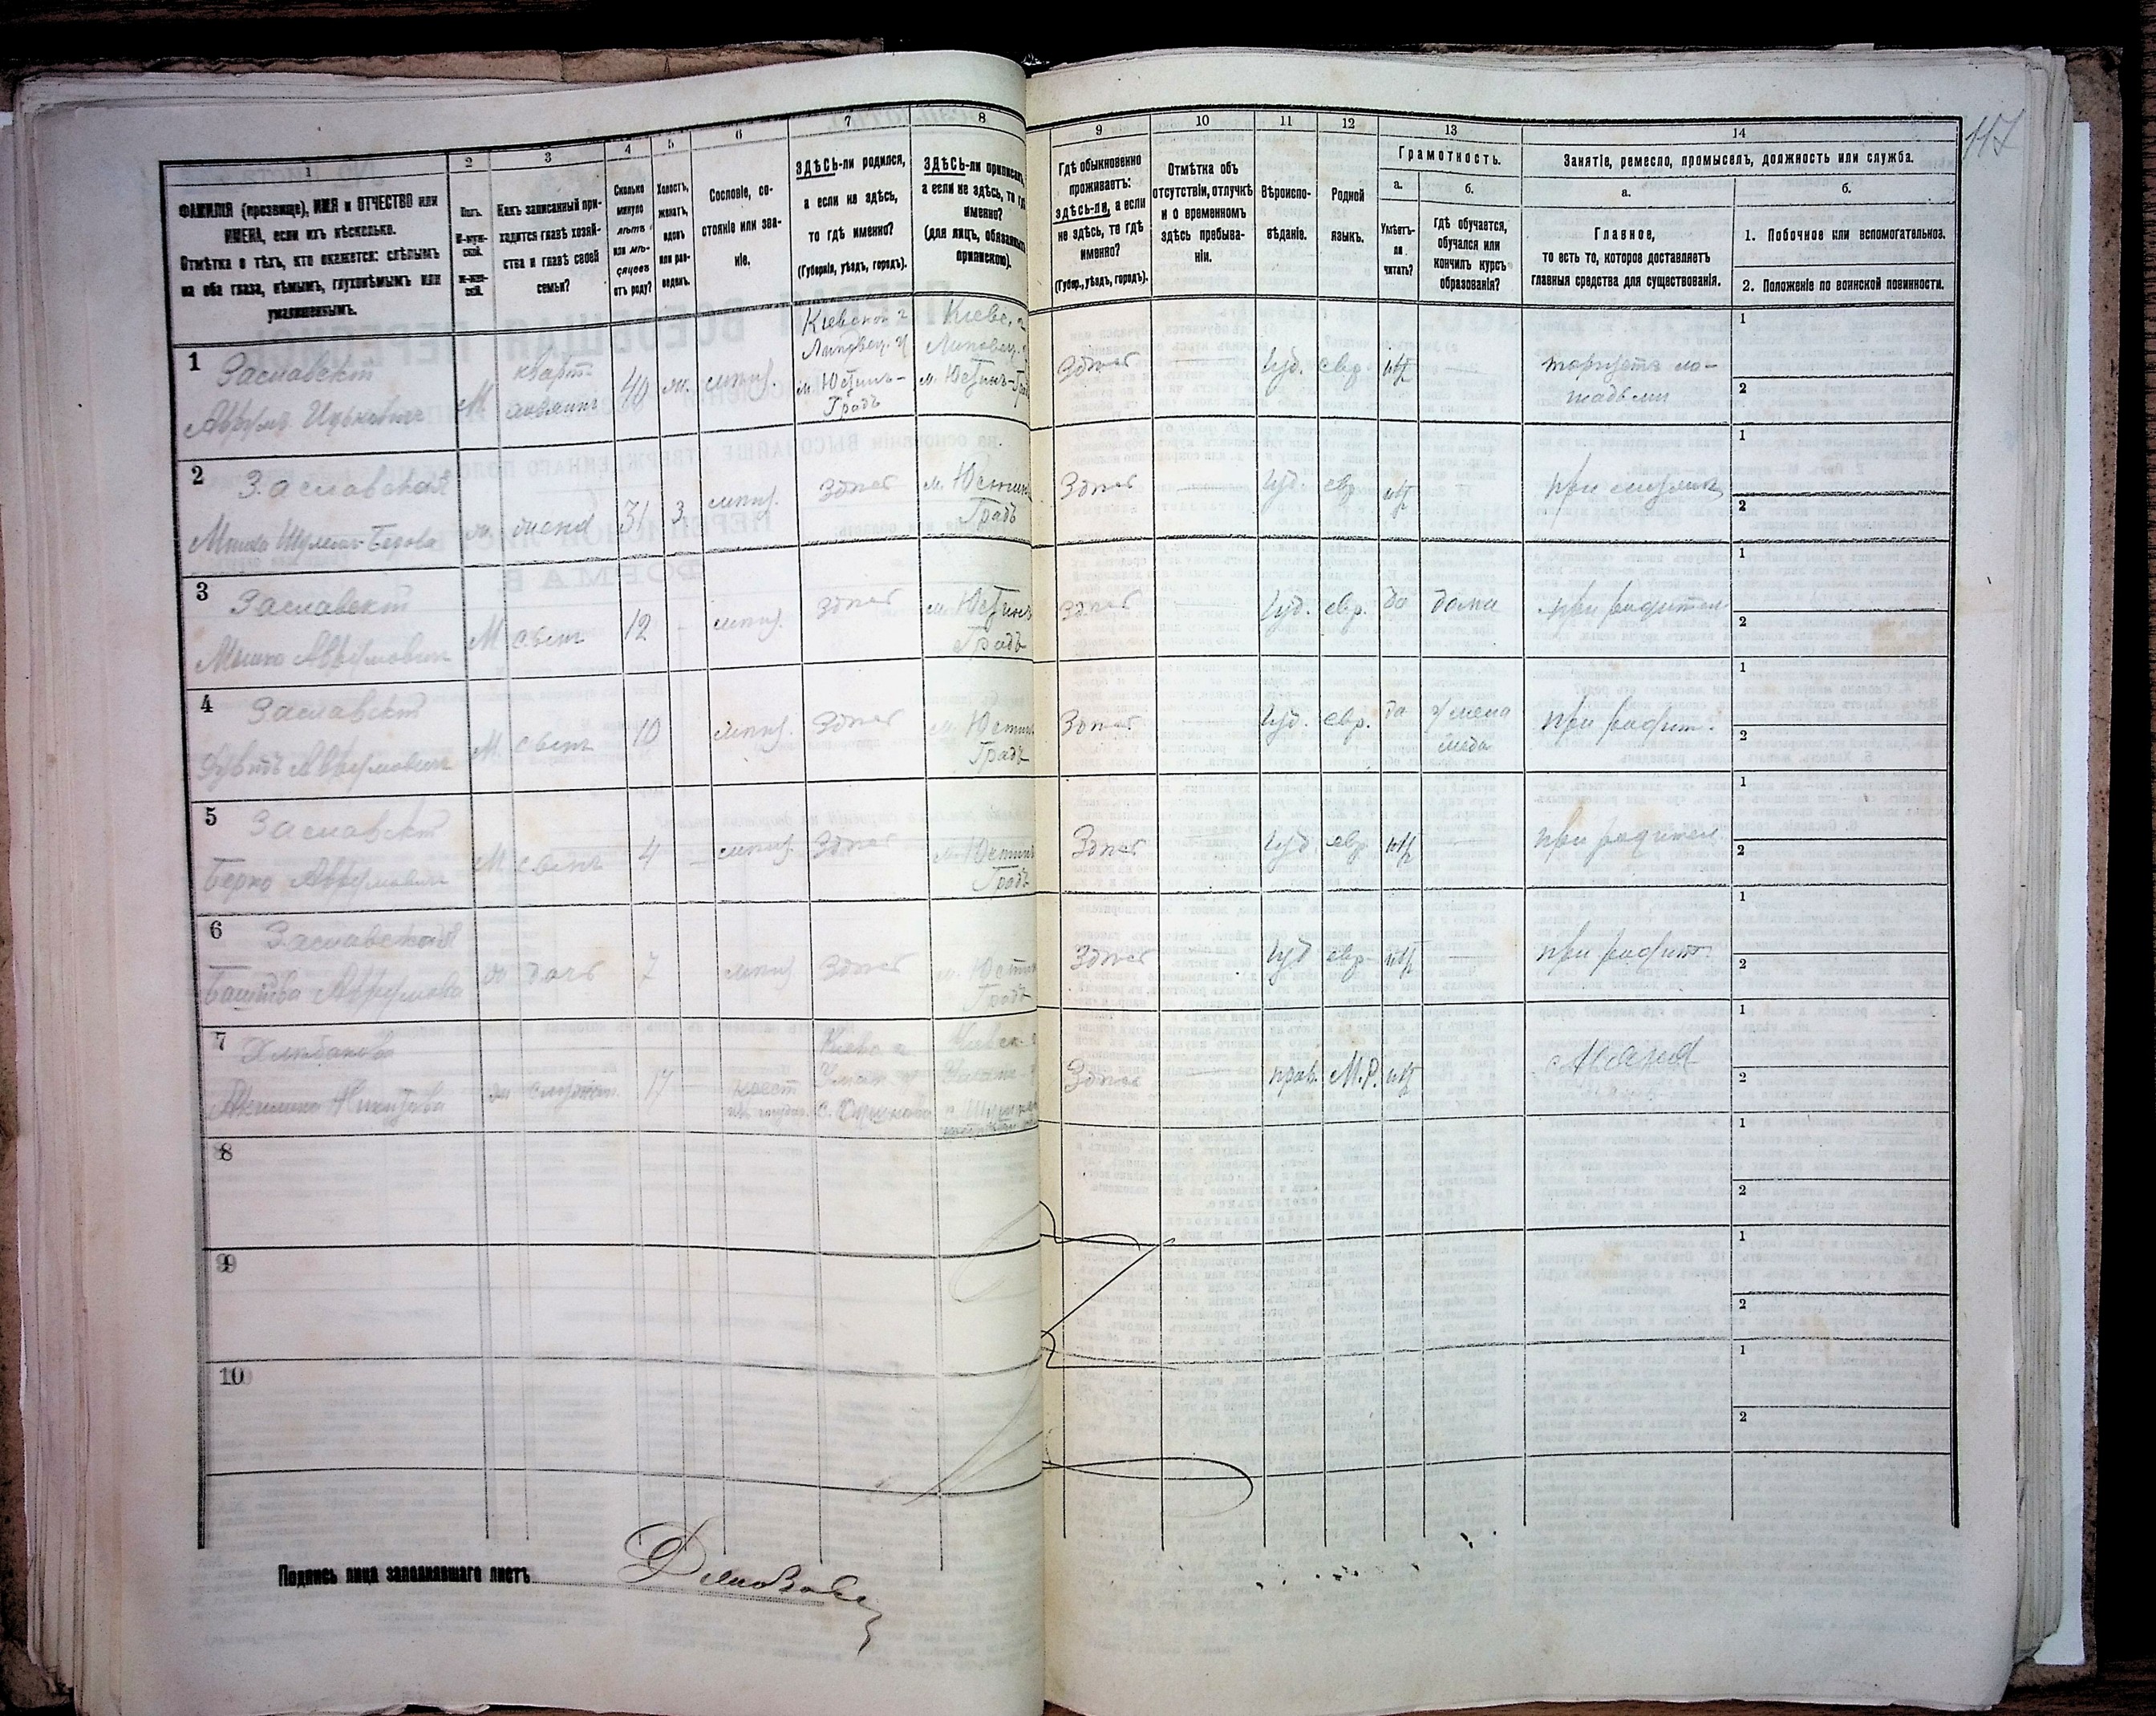 117
1
2
3
4
5
6
7
8
9
10
11
12
13
14
ФАМИЛІЯ (прозвище), ИМЯ и ОТЧЕСТВО или
ИМЕНА, если ихъ нѣсколько.
Отмѣтка о тѣхъ, кто окажется: слѣпымъ
на оба глаза, нѣмымъ, глухонѣмымъ или
умалишеннымъ.
Полъ.
М-муж-
ской.
Ж-жен-
скій.
Какъ записанный при-
ходится главѣ хозяй-
ства и главѣ своей
семьи?
Сколько
минуло
лѣтъ
или мѣ-
сяцевъ
отъ роду?
Холостъ,
женатъ,
вдовъ
или раз-
веденъ.
Сословіе, со-
стояніе или зва-
ніе.
ЗДѢСЬ-ли родился,
а если не здѣсь,
то гдѣ именно?
(Губернія, уѣздъ, городъ).
ЗДѢСЬ-ли приписанъ,
а если не здѣсь, то гдѣ
именно?
(для лицъ, обязанныхъ
припискою).
Гдѣ обыкновенно
проживаетъ:
здѣсь-ли, а если
не здѣсь, то гдѣ
именно?
(Губер., уѣздъ, городъ).
Отмѣтка объ
отсутствіи, отлучкѣ
и о временномъ
здѣсь пребыва-
ніи.
Вѣроиспо-
вѣданіе.
Родной
языкъ.
Грамотность.
а.
б.
Умѣетъ-
ли
читать?
Гдѣ обучается,
обучался или
кончилъ курсъ
образованія?
Занятіе, ремесло, промыселъ, должность или служба.
а.
б.
Главное,
то есть то, которое доставляетъ
главныя средства для существованія.
1. Побочное или вспомогательное.
2. Положеніе по воинской повинности.
1
Заславскій
Аврумъ Ицьковичъ
М
кварт.
хозяинъ
40
ж.
мѣщ.
Кіевской г
Липовец. у
м. Юстинъ-
Градъ
Кіевс. г
Липовец. у
м. Юстинъ-Градъ
Здѣсь
Іуд.
евр.
нѣт
торгуетъ ло-
шадьми
1
2
2
Заславская
ж.
жена
31
З.
мѣщ.
Здѣсь
м. Юстинъ
Градъ
Здѣсь
Іуд.
евр.
нѣт
при
1
2
3
Заславскій
Мошко Аврумовичъ
М
сынъ
12
мѣщ.
Здѣсь
м. Юстинъ
Градъ
Здѣсь
Іуд.
евр.
да
дома
при родител.
1
2
4
Заславскій
Аврумовичъ
М.
сынъ
10
мѣщ.
Здѣсь
м. Юстинъ
Градъ
Здѣсь
Іуд.
евр.
да
у мела
меда
при родит.
1
2
5
Заславскій
Берко Аврумовичъ
М
сынъ
4
мѣщ.
Здѣсь
м. Юстинъ
Градъ
Здѣсь
Іуд.
евр.
нѣт
при родител.
1
2
6
Заславская
Аврумова
ж
дочь
7
мѣщ.
Здѣсь
м. Юстинъ
Градъ
Здѣсь
Іуд
евр.
нѣт
при родит.
1
2
7
Никитова
ж
17
крест
Кіевс г
Уман. у
Кіевск. г
Уман. у
Здѣсь
прав.
М.Р.
нѣт
1
2
8
1
2
9
1
2
10
1
2
Подпись лица заполнявшаго листъ